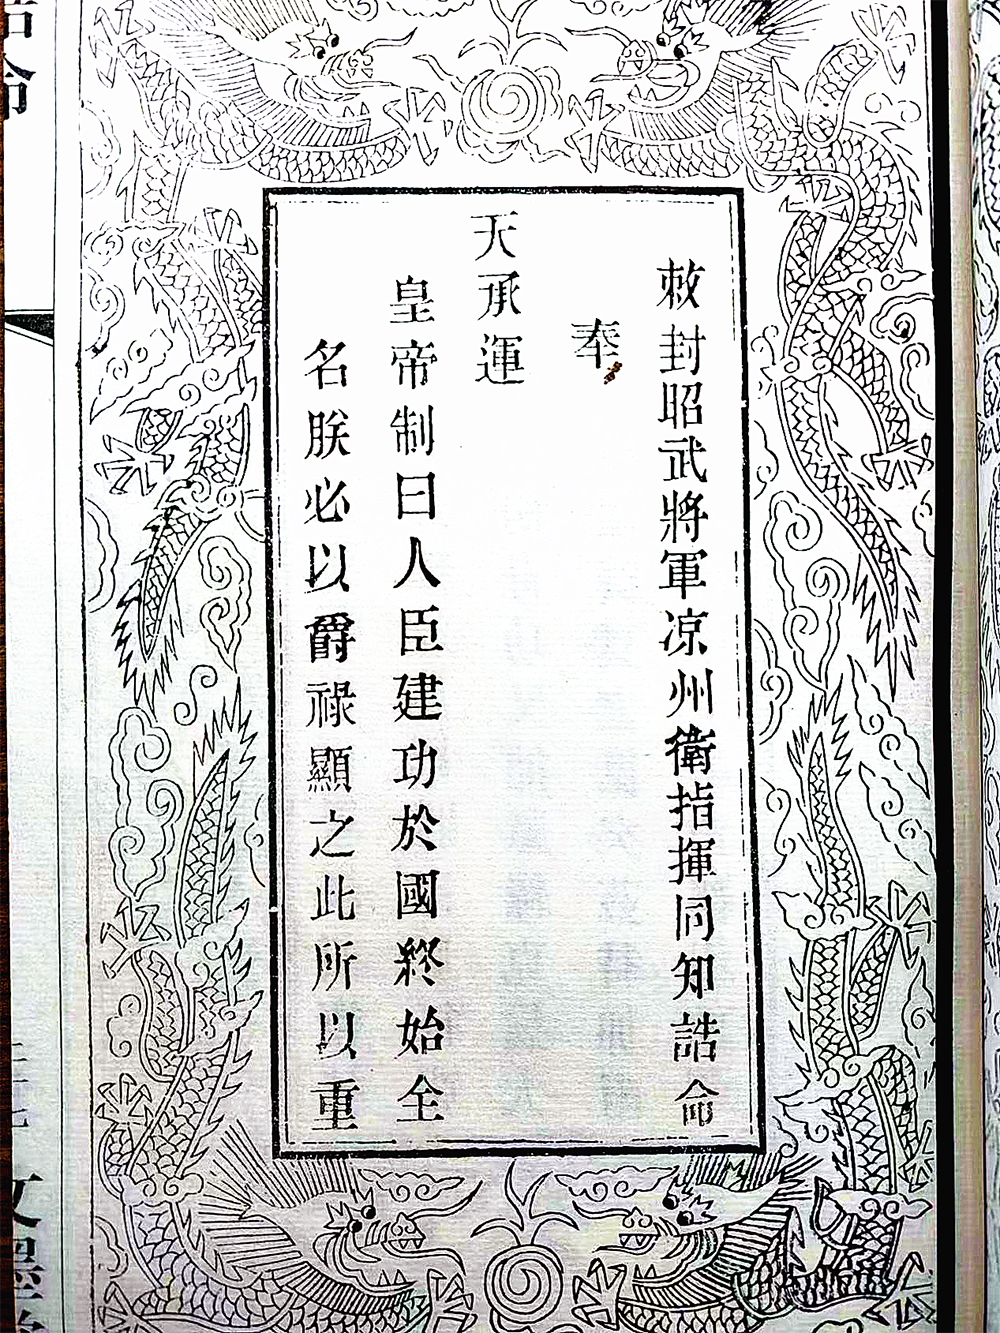 敕封昭武將軍凉州衛指揮同知誥命
奉
天承運
皇帝制曰人臣建功於國終始全
名朕必以爵祿顯之此所以重